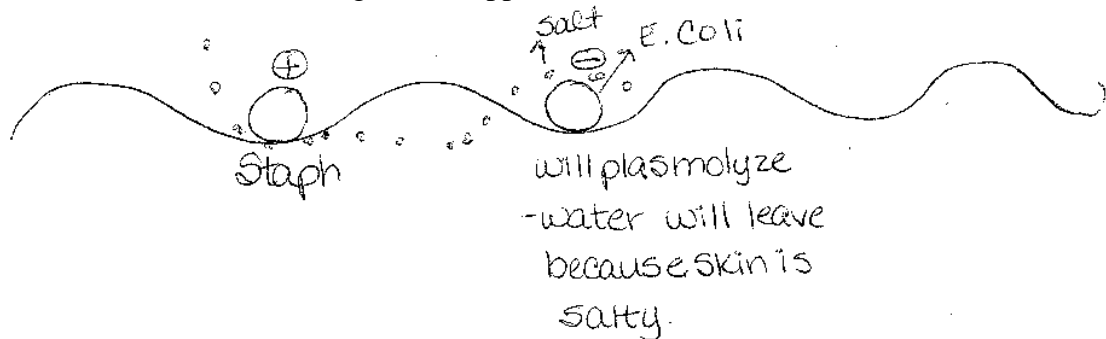 salt
E. Coli
+
−
Staph
will plasmolyze
-water will leave
because skin is
salty.